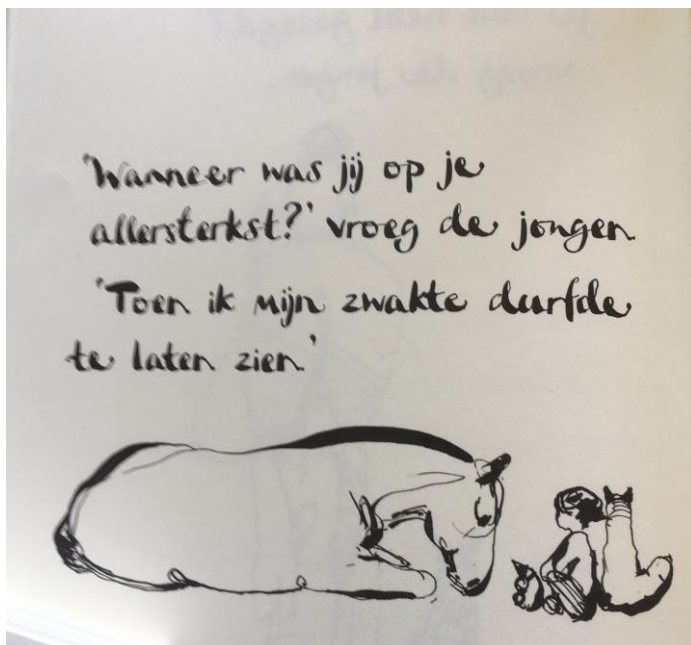 'Wanneer was jij op je
allersterkst?' vroeg de jongen.
'Toen ik mijn zwakte durfde
te laten zien.'